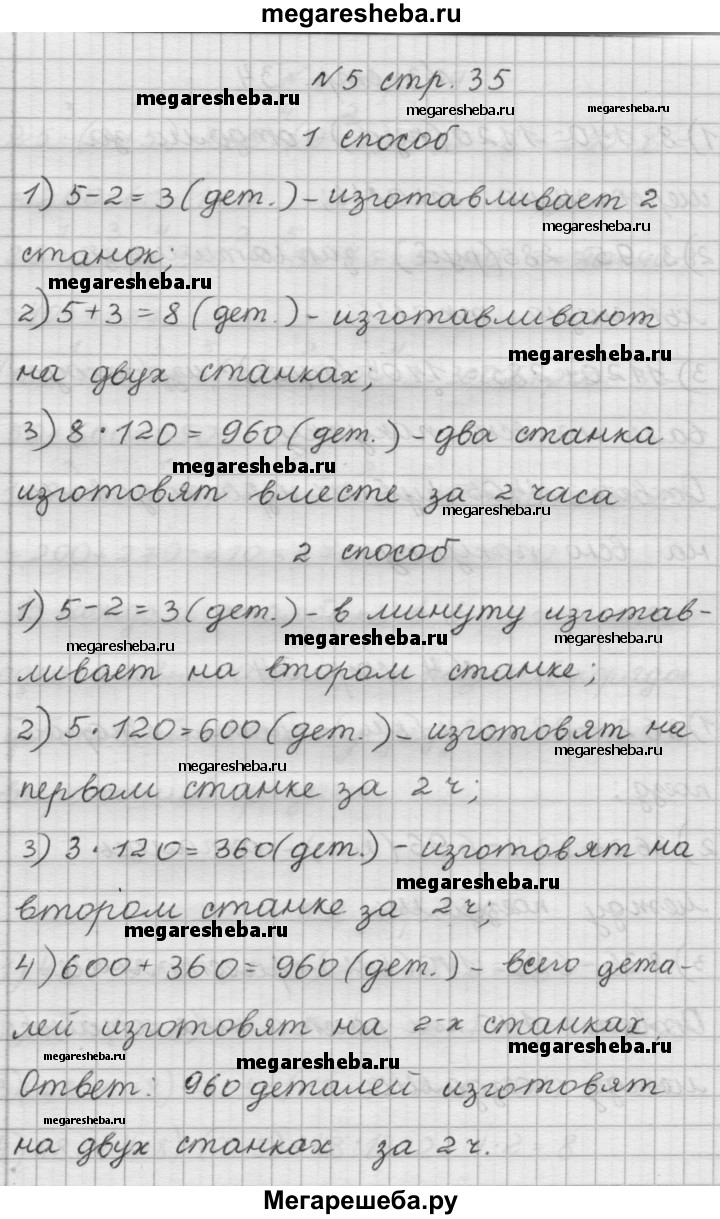 megaresheba.ru
N5 стр. 35
megaresheba.ru megaresheba.ru megaresheba.ru
1 способ
1) 5-2=3(дет.)-изготавливает 2
megaresheba.ru
станок;
megaresheba.ru
2) 5+3=8(дет.)-изготавливают
megaresheba.ru
на двух станках;
3) 8·120=960(дет.)-два станка
megaresheba.ru
изготовят вместе за 2 часа
megaresheba.ru
2 способ
1) 5-2=3(дет.)-в минуту изготав-
megaresheba.ru megaresheba.ru megaresheba.ru
ливает на втором станке;
2) 5·120=600(дет.)-изготовят на
megaresheba.ru megaresheba.ru
первом станке за 2 ч;
3) 3·120=360(дет.)-изготовят на
megaresheba.ru
втором станке за 2 ч;
megaresheba.ru
4) 600+360=960(дет.)-всего дета-
лей изготовят на 2-х станках
megaresheba.ru megaresheba.ru megaresheba.ru
Ответ: 960 деталей изготовят
megaresheba.ru
на двух станках за 2 ч.
Мегарешеба.ру